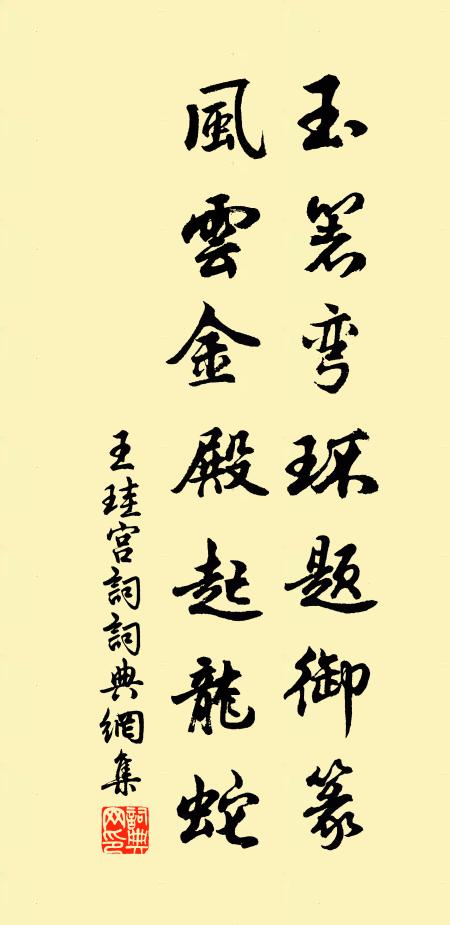 玉箸弯环题御篆
風雲金殿起龍蛇
王珪宫詞詞典網集
詞典網印